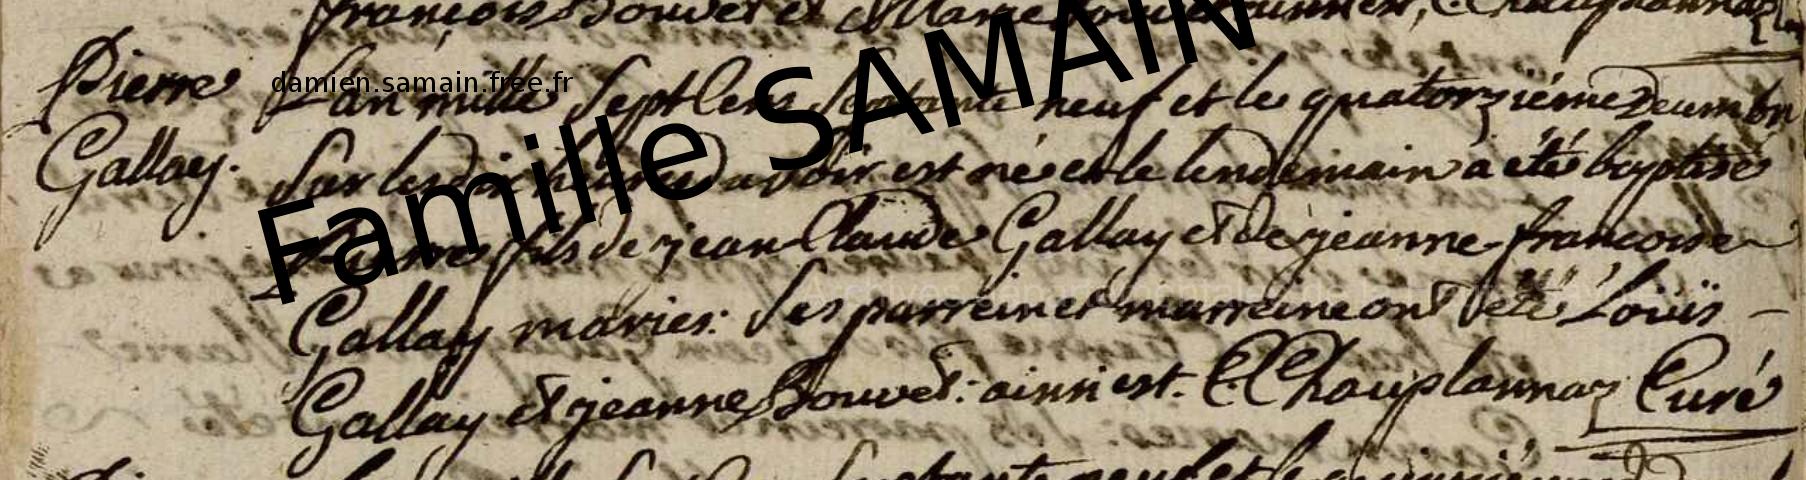 françois Bouvet et Marie
Pierre
Gallay.
damien.samain.free.fr
Famille SAMAIN
L'an mille Sept Cens Septante neuf et le quatorzième Decembre
Sur les dix heures du soir est né et le lendemain a eté baptisé
Pierre fils de jean Claude Gallay et de jeanne françoise
Gallay maries: Ses parrein et marreine ont eté Loüis -
Gallay et jeanne Bouvet: ainsi est. C Chauplannaz Curé
Septante neuf et le